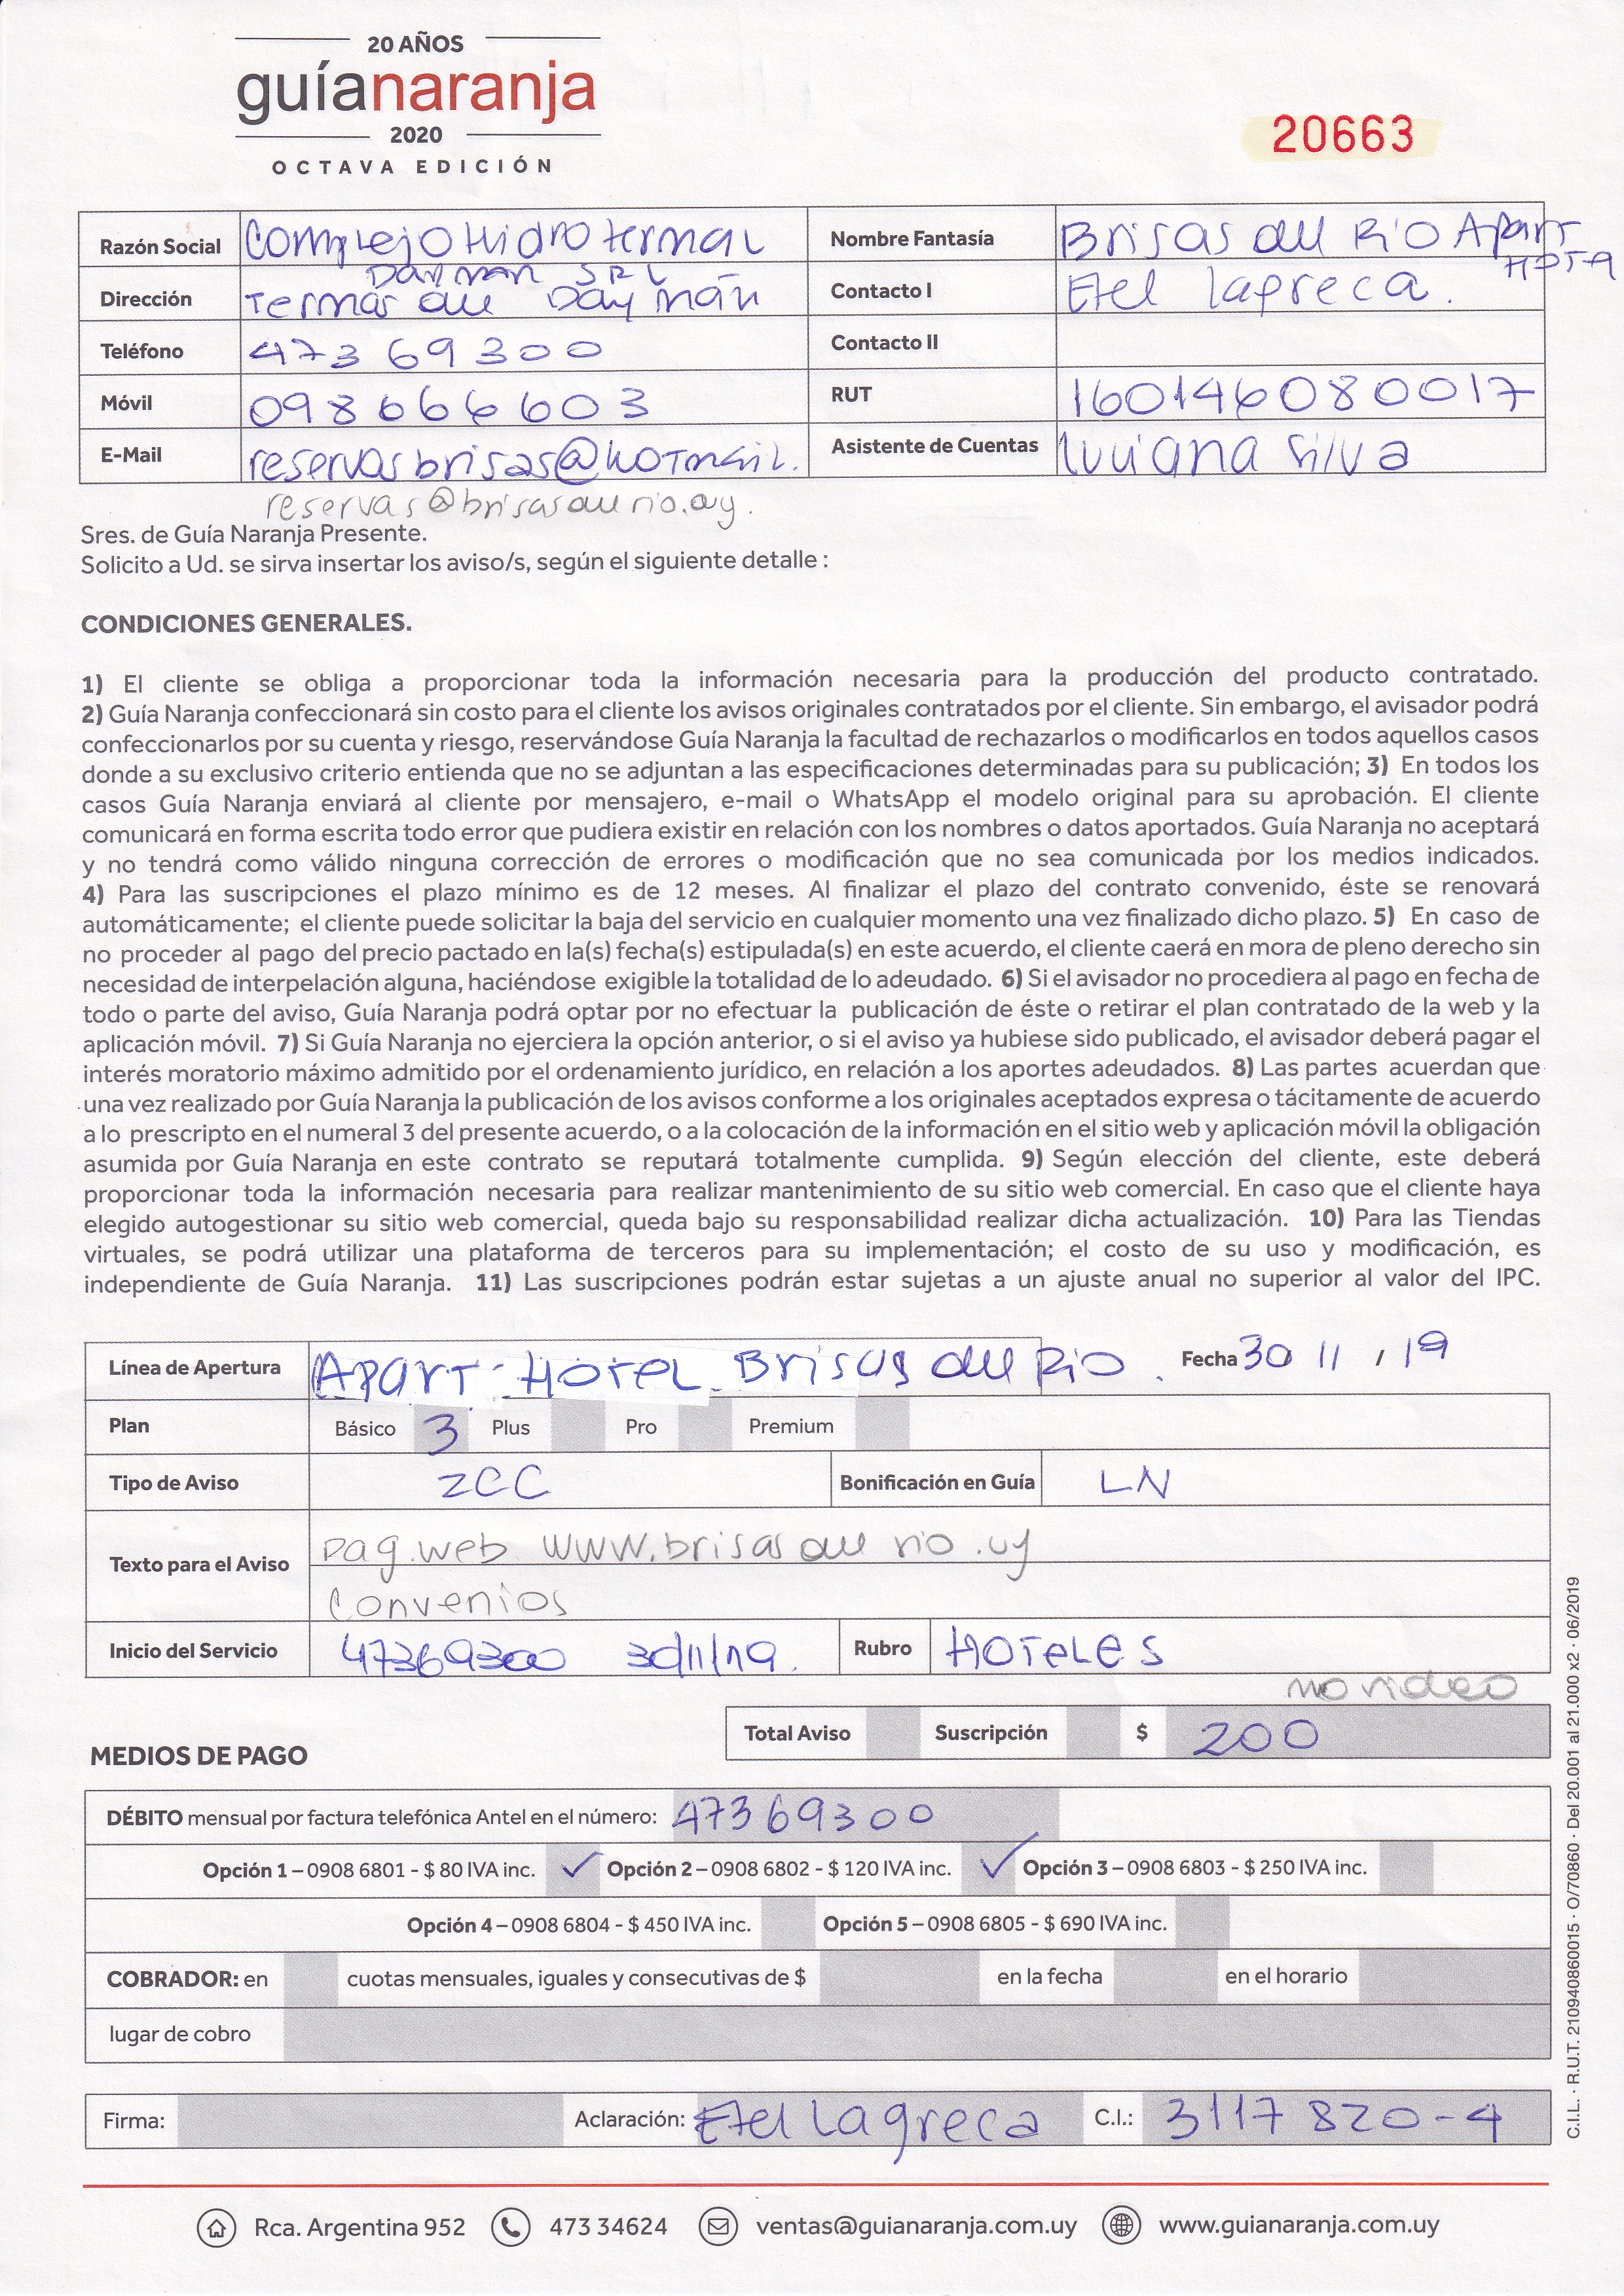 20 AÑOS
guíanaranja
2020
OCTAVA EDICIÓN
20663
Razón Social Complejo Hidrotermal
Dayman SRL
Nombre Fantasía Brisas del Rio Apart
Dirección Termas del Daymán
Contacto I Etel Lagreca.
Teléfono 473 69300
Contacto II
Móvil 098666603
RUT 160146080017
E-Mail reservasbrisas@hotmail.
Asistente de Cuentas Luciana Silva
reservas@brisasdelrio.uy.
Sres. de Guía Naranja Presente.
Solicito a Ud. se sirva insertar los aviso/s, según el siguiente detalle :
CONDICIONES GENERALES.
1) El cliente se obliga a proporcionar toda la información necesaria para la producción del producto contratado.
2) Guía Naranja confeccionará sin costo para el cliente los avisos originales contratados por el cliente. Sin embargo, el avisador podrá
confeccionarlos por su cuenta y riesgo, reservándose Guía Naranja la facultad de rechazarlos o modificarlos en todos aquellos casos
donde a su exclusivo criterio entienda que no se adjuntan a las especificaciones determinadas para su publicación; 3) En todos los
casos Guía Naranja enviará al cliente por mensajero, e-mail o WhatsApp el modelo original para su aprobación. El cliente
comunicará en forma escrita todo error que pudiera existir en relación con los nombres o datos aportados. Guía Naranja no aceptará
y no tendrá como válido ninguna corrección de errores o modificación que no sea comunicada por los medios indicados.
4) Para las suscripciones el plazo mínimo es de 12 meses. Al finalizar el plazo del contrato convenido, éste se renovará
automáticamente; el cliente puede solicitar la baja del servicio en cualquier momento una vez finalizado dicho plazo. 5) En caso de
no proceder al pago del precio pactado en la(s) fecha(s) estipulada(s) en este acuerdo, el cliente caerá en mora de pleno derecho sin
necesidad de interpelación alguna, haciéndose exigible la totalidad de lo adeudado. 6) Si el avisador no procediera al pago en fecha de
todo o parte del aviso, Guía Naranja podrá optar por no efectuar la publicación de éste o retirar el plan contratado de la web y la
aplicación móvil. 7) Si Guía Naranja no ejerciera la opción anterior, o si el aviso ya hubiese sido publicado, el avisador deberá pagar el
interés moratorio máximo admitido por el ordenamiento jurídico, en relación a los aportes adeudados. 8) Las partes acuerdan que
una vez realizado por Guía Naranja la publicación de los avisos conforme a los originales aceptados expresa o tácitamente de acuerdo
a lo prescripto en el numeral 3 del presente acuerdo, o a la colocación de la información en el sitio web y aplicación móvil la obligación
asumida por Guía Naranja en este contrato se reputará totalmente cumplida. 9) Según elección del cliente, este deberá
proporcionar toda la información necesaria para realizar mantenimiento de su sitio web comercial. En caso que el cliente haya
elegido autogestionar su sitio web comercial, queda bajo su responsabilidad realizar dicha actualización. 10) Para las Tiendas
virtuales, se podrá utilizar una plataforma de terceros para su implementación; el costo de su uso y modificación, es
independiente de Guía Naranja. 11) Las suscripciones podrán estar sujetas a un ajuste anual no superior al valor del IPC.
Línea de Apertura Apart-Hotel Brisas del Rio. Fecha 30 11 / 19
Plan Básico 3 Plus Pro Premium
Tipo de Aviso 2CC Bonificación en Guía LN
Texto para el Aviso pag.web www.brisasdelrio.uy
Convenios
Inicio del Servicio 47369300 30/11/19. Rubro HOTELES
no video
Total Aviso Suscripción $ 200
MEDIOS DE PAGO
DÉBITO mensual por factura telefónica Antel en el número: 47369300
Opción 1 – 0908 6801 - $ 80 IVA inc. ✓ Opción 2 – 0908 6802 - $ 120 IVA inc. ✓ Opción 3 – 0908 6803 - $ 250 IVA inc.
Opción 4 – 0908 6804 - $ 450 IVA inc. Opción 5 – 0908 6805 - $ 690 IVA inc.
COBRADOR: en cuotas mensuales, iguales y consecutivas de $ en la fecha en el horario
lugar de cobro
Firma: Aclaración: Etel Lagreca C.I.: 3117 820-4
Rca. Argentina 952 473 34624 ventas@guianaranja.com.uy www.guianaranja.com.uy
C.I.L. · R.U.T. 210940860015 · O/70860 · Del 20.001 al 21.000 x2 · 06/2019